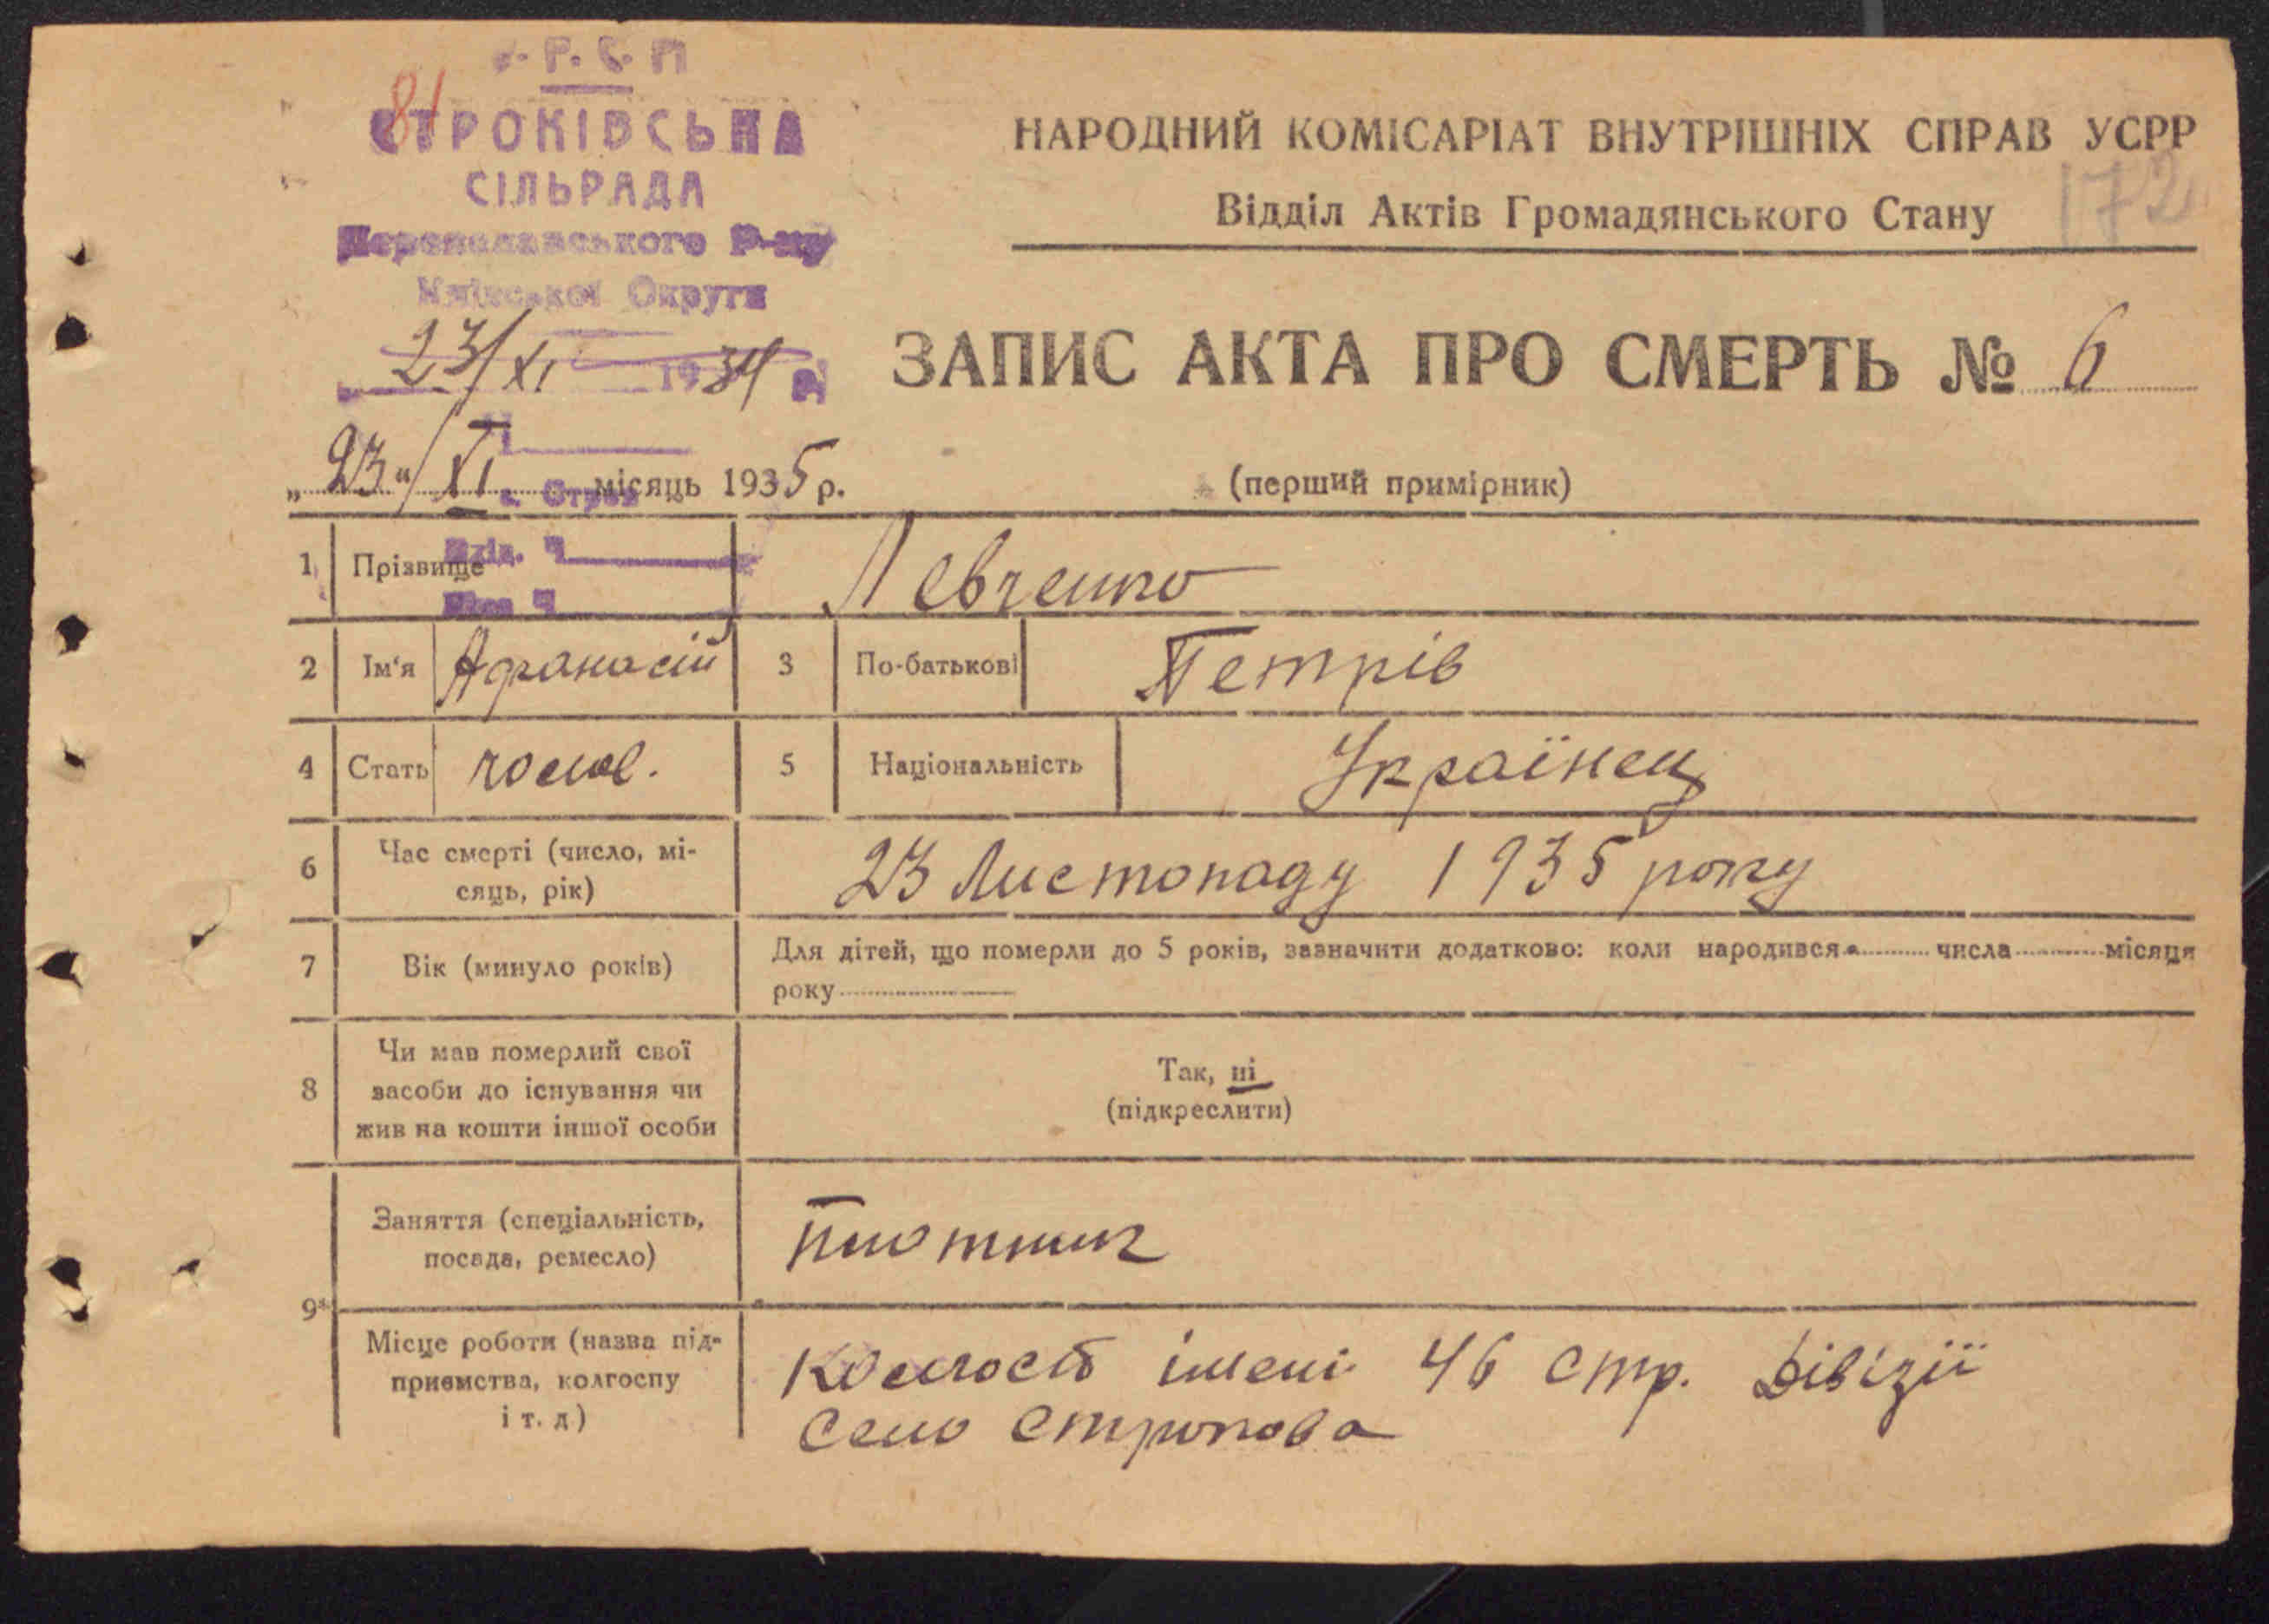 Р. С. П
81
СТРОКІВСЬКА
СІЛЬРАДА
Переяславського Р-ну
Київської Округи
23/XI 1934 р.
НАРОДНИЙ КОМІСАРІАТ ВНУТРІШНІХ СПРАВ УСРР
172
Відділ Актів Громадянського Стану
ЗАПИС АКТА ПРО СМЕРТЬ № 6
„23“/XI місяць 1935 р.
(перший примірник)
1 Прізвище Левченко
2 Ім'я Афанасій 3 По-батькові Петрів
4 Стать чолов. 5 Національність Українец
6 Час смерті (число, мі-
сяць, рік) 23 Листопаду 1935 року
7 Вік (минуло років) Для дітей, що померли до 5 років, зазначити додатково: коли народився числа місяця
року
8 Чи мав померлий свої
засоби до існування чи
жив на кошти іншої особи
Так, ні
(підкреслити)
9*
Заняття (спеціальність,
посада, ремесло) плотник
Місце роботи (назва під-
приємства, колгоспу
і т. д)
Колгосп імені 46 стр. Дівізії
село Строкова